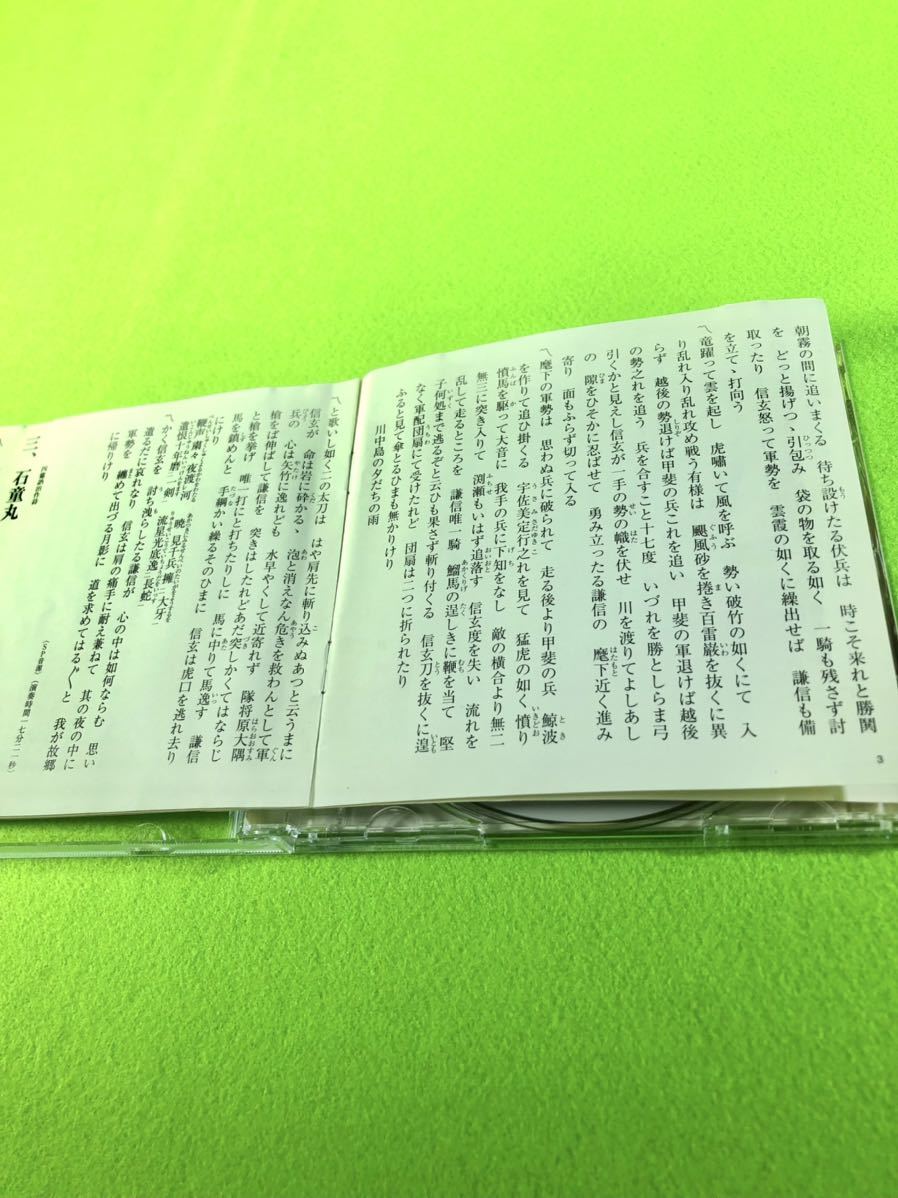 朝霧の間に追いまくる　待ち設けたる伏兵は　時こそ来れと勝鬨
を　どっと揚げつゝ引包み　袋の物を取る如く　一騎も残さず討
取ったり　信玄怒って軍勢を　雲霞の如くに繰出せば　謙信も備
を立てゝ打向う
〽竜躍って雲を起し　虎嘯いて風を呼ぶ　勢い破竹の如くにて　入
り乱れ入り乱れ攻め戦う有様は　颶風砂を捲き百雷巌を抜くに異
らず　越後の勢退けば甲斐の兵これを追い　甲斐の軍退けば越後
の勢之れを追う　兵を合すこと十七度　いづれを勝としらま弓
引くかと見えし信玄が一手の勢の幟を伏せ　川を渡りてよしあし
の　隙をひそかに忍ばせて　勇み立ったる謙信の　麾下近く進み
寄り　面もふらず切って入る
〽麾下の軍勢は　思わぬ兵に破られて　走る後より甲斐の兵　鯨波
を作りて追ひ掛くる　宇佐美定行之れを見て　猛虎の如く憤り
憤馬を駆って大音に　我手の兵に下知をなし　敵の横合より無二
無三に突き入りて　渕瀬もいはず追落す　信玄度を失い　流れを
乱して走るところを　謙信唯一騎　鰡馬の逞しきに鞭を当て　堅
子何処まで逃るぞと云ひも果さず斬り付くる　信玄刀を抜くに遑
なく軍配団扇にて受けたれど　団扇は二つに折られたり
ふると見て傘とるひまも無かりけり
川中島の夕だちの雨
3
〽と歌いし如く二の太刀は　はや肩先に斬り込みぬあつと云うまに
信玄が　命は岩に砕かるゝ　泡と消えなん危きを救わんとして軍
兵の　心は矢竹に逸れども　水早やくして近寄れず　隊将原大隅
槍をば伸ばして謙信を　突きはしたれどあだ突しかくてはならじ
と槍を挙げ　唯一打にと打ちたりしに　馬に中りて馬逸す　謙信
馬を鎮めんと　手綱かい繰るそのひまに　信玄は虎口を逃れ去り
にけり
鞭声粛々夜渡河　暁見千兵擁二大牙一
遺恨十年磨二一剣一　流星光底逸二長蛇一
〽かく信玄を　討ち洩らしたる謙信が　心の中は如何ならむ　思い
遣るだに哀れなり　信玄は肩の痛手に耐え兼ねて　其の夜の中に
軍勢を　纏めて出づる月影に　道を求めてはる〲と　我が故郷
に帰りけり
（SP音源）（演奏時間　七分二一秒）
三、石童丸